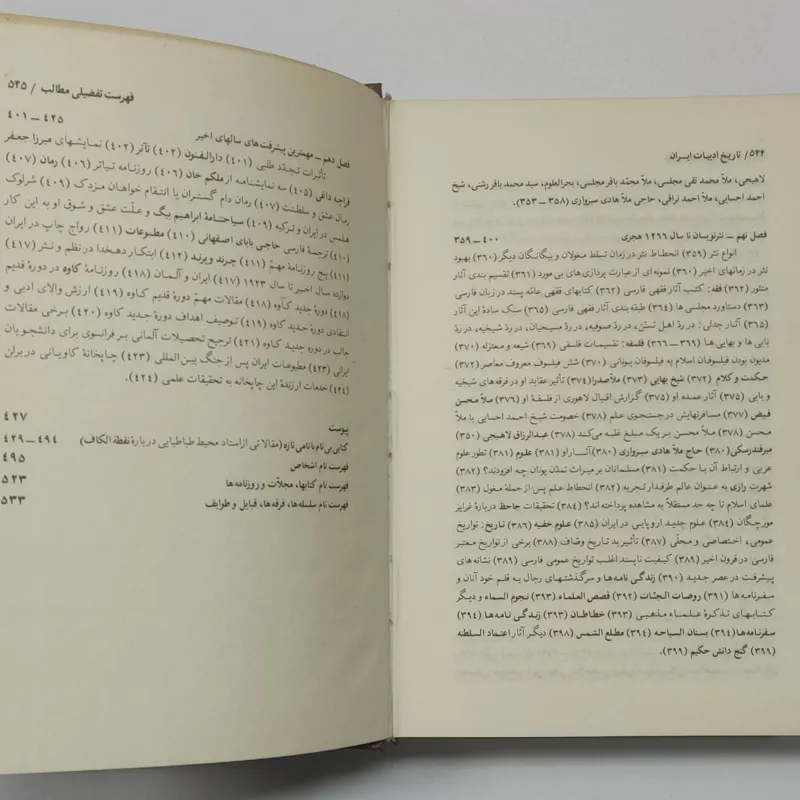 ۵۴۴/ تاریخ ادبیات ایران
لاهیجی، ملاّ محمد تقی مجلسی، ملاّ محمّد باقر مجلسی، بحرالعلوم، سید محمد باقر رشتی، شیخ
احمد احسایی، ملاّ احمد نراقی، حاجی ملاّ هادی سبزواری (۳۵۸ – ۳۵۳).
فصل نهم – نثرنویسان تا سال ۱۲۶۶ هجری ۴۰۰ – ۳۵۹
انواع نثر (۳۵۹) انحطاط نثر در زمان تسلط مغولان و بیگانگان دیگر (۳۶۰) بهبود
نثر در زمانهای اخیر (۳۶۰) نمونه ای از عبارت پردازی‌های بی مورد (۳۶۱) تقسیم بندی آثار
منثور (۳۶۲) فقه: کتب آثار فقهی فارسی (۳۶۲) کتابهای فقهی عامّه پسند در زبان فارسی
(۳۶۳) دستاورد مجلسی ها (۳۶۴) طبقه بندی آثار فقهی فارسی (۳۶۵) سبک ساده این آثار
(۳۶۵) آثار جدلی: در ردّ اهل تسنّن، در ردّ صوفیه، در ردّ مسیحیان، در ردّ شیخیه، در ردّ
بابی ها و بهایی ها (۳۶۹ – ۳۶۶) فلسفه: تقسیمات فلسفی (۳۶۹) شیعه و معتزله (۳۷۰)
مدیون بودن فیلسوفان اسلام به فیلسوفان یونانی (۳۷۰) شش فیلسوف معروف معاصر (۳۷۲)
حکمت و کلام (۳۷۲) شیخ بهایی (۳۷۳) ملاّصدرا (۳۷۴) تأثیر عقاید او در فرقه های شیخیه
و بابی (۳۷۵) آثار عمده او (۳۷۵) گزارش اقبال لاهوری از فلسفهٔ او (۳۷۶) ملاّ محسن
فیض (۳۷۷) مسافرتهایش در جستجوی علم (۳۷۸) خصومت شیخ احمد احسایی با ملاّ
محسن (۳۷۸) ملاّ محسن بر یک مبلغ غلبه می‌کند (۳۷۸) عبدالرزاق لاهیجی (۳۵۰)
میرفندرسکی (۳۸۰) حاج ملاّ هادی سبزواری (۳۸۰) آثار او (۳۸۱) علوم (۳۸۱) تطور علوم
عربی و ارتباط آن با حکمت (۳۸۱) مسلمانان بر میراث تمدن یونان چه افزودند؟ (۳۸۲)
شهرت رازی به عنوان عالم طرفدار تجربه (۳۸۲) انحطاط علم پس از حملهٔ مغول (۳۸۳)
علمای اسلام تا چه حد مستقلاً به مشاهده پرداخته اند؟ (۳۸۴) تحقیقات جاحظ دربارهٔ غرایز
مورچگان (۳۸۴) علوم جدید اروپایی در ایران (۳۸۵) علوم خفیه (۳۸۶) تاریخ: تواریخ
عمومی، اختصاصی و محلّی (۳۸۷) تأثیر بد تاریخ وصّاف (۳۸۸) برخی از تواریخ معتبر
فارسی در قرون اخیر (۳۸۹) کیفیت ناپسند اغلب تواریخ عمومی فارسی (۳۸۹) نشانه های
پیشرفت در عصر جدید (۳۹۰) زندگی نامه‌ها و سرگذشتهای رجال به قلم خود آنان و
سفرنامه‌ها (۳۹۱) روضات الجنّات (۳۹۲) قصص العلماء (۳۹۳) نجوم السماء و دیگر
کتابهای تذکرهٔ علماء مذهبی (۳۹۳) خطاطان (۳۹۳) زندگی نامه‌ها (۳۹۴)
سفرنامه‌ها (۳۹۴) بستان السیاحه (۳۹۴) مطلع الشمس (۳۹۸) دیگر آثار اعتماد السلطنه
(۳۹۹) گنج دانش حکیم (۳۹۹).
فهرست تفضیلی مطالب / ۵۴۵
فصل دهم – مهمترین پیشرفت‌های سالهای اخیر ۴۲۵ – ۴۰۱
تأثیرات تجدّد طلبی (۴۰۱) دارالفنون (۴۰۲) تآتر (۴۰۲) نمایشهای میرزا جعفر
قراجه داغی (۴۰۵) سه نمایشنامه از ملکم خان (۴۰۶) روزنامه تیاتر (۴۰۶) رمان (۴۰۷)
رمان عشق و سلطنت (۴۰۷) رمان دام گستران یا انتقام خواهان مزدک (۴۰۹) شرلوک
هلمس در ایران و ترکیه (۴۰۹) سیاحتنامهٔ ابراهیم بیگ و علّت عشق و شوق او به این کار
(۴۱۰) ترجمهٔ فارسی حاجی بابای اصفهانی (۴۱۰) مطبوعات (۴۱۱) رواج چاپ در ایران
(۴۱۱) پنج روزنامهٔ مهمّ (۴۱۱) چرند و پرند (۴۱۲) ابتکار دهخدا در نظم و نثر (۴۱۷)
دوازده سال اخیر تا سال ۱۹۲۳ (۴۱۷) ایران و آلمان (۴۱۸) روزنامهٔ کاوه در دورهٔ قدیم
(۴۱۸) دورهٔ جدید کاوه (۴۱۸) مقالات مهمّ دورهٔ قدیم کاوه (۴۱۹) ارزش والای ادبی و
انتقادی دورهٔ جدید کاوه (۴۱۹) توصیف اهداف دورهٔ جدید کاوه (۴۲۰) برخی مقالات
جالب در دوره جدید کاوه (۴۲۱) ترجیح تحصیلات آلمانی بر فرانسوی برای دانشجویان
ایرانی (۴۲۳) مطبوعات ایران پس از جنگ بین المللی (۴۲۳) چاپخانهٔ کاویانی در برلن
(۴۲۴) خدمات ارزندهٔ این چاپخانه به تحقیقات علمی (۴۲۴).
پیوست ۴۲۷
کتابی بی نام با نامی تازه (مقالاتی از استاد محیط طباطبایی دربارهٔ نقطة الکاف) ۴۹۴ – ۴۲۹
فهرست نام اشخاص ۴۹۵
فهرست نام کتابها، مجلاّت و روزنامه ها ۵۲۳
فهرست نام سلسله‌ها، فرقه ها، قبایل و طوایف ۵۳۳